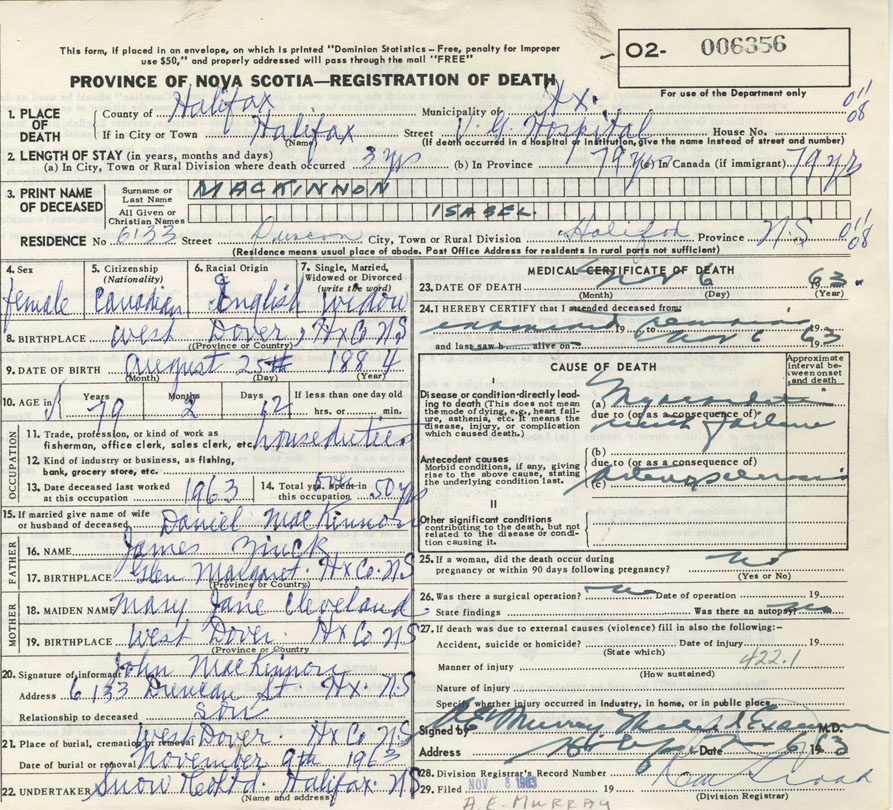 This form, if placed in an envelope, on which is printed "Dominion Statistics – Free, penalty for improper
use $50," and properly addressed will pass through the mail "FREE"
O2- 006356
For use of the Department only
PROVINCE OF NOVA SCOTIA—REGISTRATION OF DEATH
1. PLACE OF DEATH County of Halifax Municipality of Hx. 011
If in City or Town Halifax Street V. G. Hospital House No. 08
(Name) (If death occurred in a hospital or institution, give the name instead of street and number)
2. LENGTH OF STAY (in years, months and days)
(a) In City, Town or Rural Division where death occurred 3 yrs (b) In Province 79 yrs (c) In Canada (if immigrant) 79 yrs
3. PRINT NAME OF DECEASED Surname or Last Name MACKINNON
All Given or Christian Names ISABEL
RESIDENCE No 6133 Street Duncan City, Town or Rural Division Halifax Province N.S 011 08
(Residence means usual place of abode. Post Office Address for residents in rural parts not sufficient)
4. Sex female
5. Citizenship (Nationality) Canadian
6. Racial Origin English
7. Single, Married, Widowed or Divorced (write the word) widow
8. BIRTHPLACE West Dover, Hx Co NS
(Province or Country)
9. DATE OF BIRTH August 25th 1884
(Month) (Day) (Year)
10. AGE in Years 79 Months 2 Days 12 If less than one day old hrs. or min.
OCCUPATION
11. Trade, profession, or kind of work as fisherman, office clerk, sales clerk, etc. houseduties
12. Kind of industry or business, as fishing, bank, grocery store, etc.
13. Date deceased last worked at this occupation 1963
14. Total yrs. spent in this occupation 50 yrs
15. If married give name of wife or husband of deceased Daniel MacKinnon
FATHER
16. NAME James Zinck
17. BIRTHPLACE Glen Margaret. Hx Co. NS
(Province or Country)
MOTHER
18. MAIDEN NAME Mary Jane Cleveland
19. BIRTHPLACE West Dover. Hx Co NS
(Province or Country
20. Signature of informant John MacKinnon
Address 6133 Duncan St. Hx. N.S
Relationship to deceased son
21. Place of burial, cremation or removal West Dover Hx Co NS
Date of burial or removal November 9th 1963
22. UNDERTAKER Snow & Co Ltd. Halifax. NS
(Name and address)
MEDICAL CERTIFICATE OF DEATH
23. DATE OF DEATH Nov 6 1963
(Month) (Day) (Year)
24. I HEREBY CERTIFY that I attended deceased from:
examined remains 19 to Nov 6 1963
and last saw h alive on 19
CAUSE OF DEATH
Approximate interval between onset and death
I
Disease or condition directly leading to death (This does not mean the mode of dying, e.g., heart failure, asthenia, etc. It means the disease, injury, or complication which caused death.)
(a) Myocarditis
due to (or as a consequence of)
with failure
Antecedent causes
Morbid conditions, if any, giving rise to the above cause, stating the underlying condition last.
(b)
due to (or as a consequence of)
(c) Arteriosclerosis
II
Other significant conditions contributing to the death, but not related to the disease or condition causing it.
25. If a woman, did the death occur during pregnancy or within 90 days following pregnancy? No
(Yes or No)
26. Was there a surgical operation? no Date of operation 19
State findings Was there an autopsy? no
27. If death was due to external causes (violence) fill in also the following:-
Accident, suicide or homicide? Date of injury 19
(State which) 422.1
Manner of injury
(How sustained)
Nature of injury
Specify whether injury occurred in industry, in home, or in public place
Signed by A E Murray Medical Examiner M.D.
Address Date 6 1963
28. Division Registrar's Record Number
29. Filed NOV 8 1963 19
(Division Registrar)
A.E. MURRAY